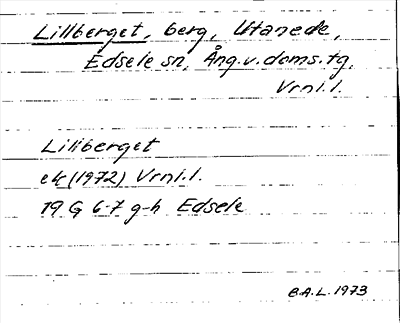 Lillberget, berg, Utanede,
Edsele sn, Ång.v.doms.tg,
Vrnl.l.
Lillberget
ek (1972) Vrnl.l.
19 G 6-7 g-h Edsele
B.A.L. 1973